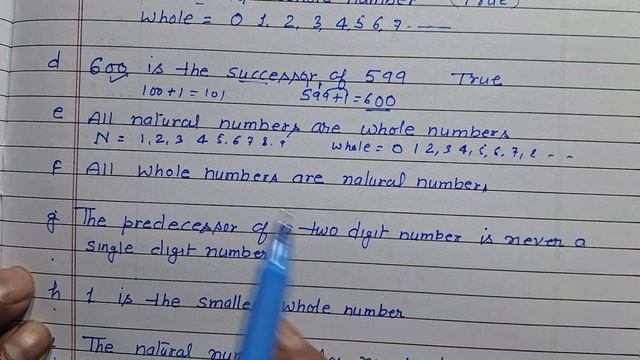 whole number (True)
Whole = 0 1, 2, 3, 4, 5, 6, 7 ----
d 600 is the successor of 599 True
100+1=101 599+1=600
e All natural numbers are whole numbers
N = 1, 2, 3 4 5. 6 7 8. 9 whole = 0 1 2, 3 4, 5, 6. 7, 8 - -
f All whole numbers are natural numbers
g The predecessor of two digit number is never a
single digit number
h 1 is the whole number
The natural